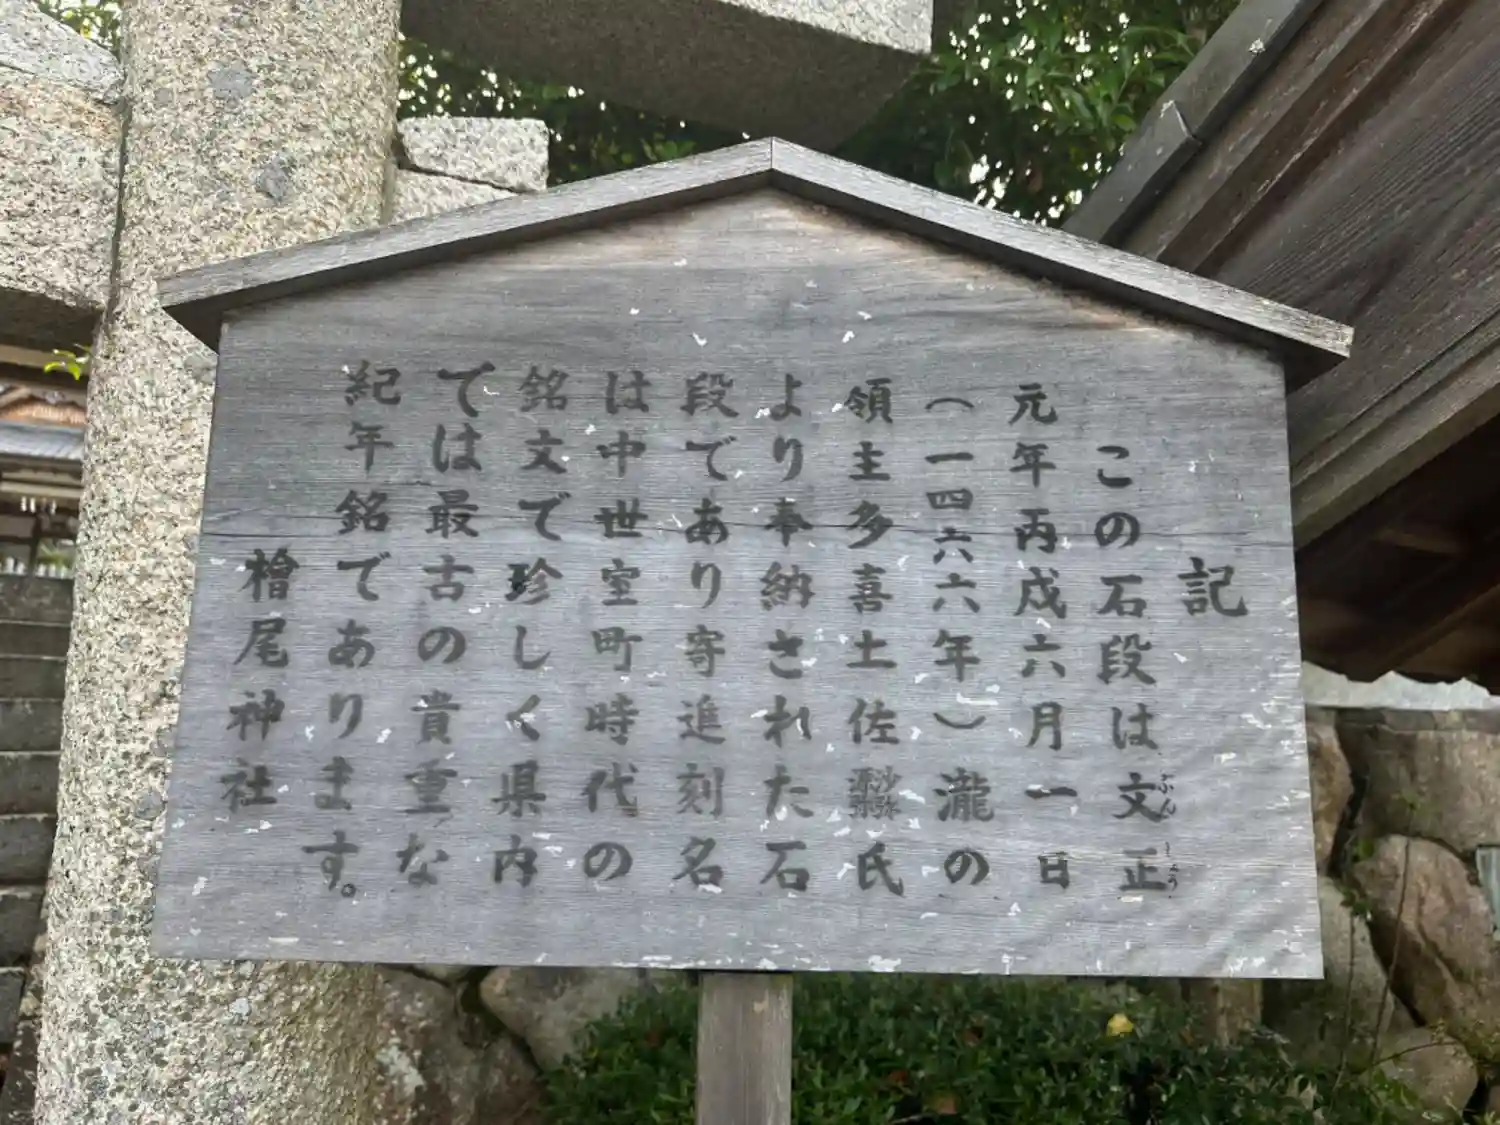 記
この石段は文正
ぶん しょう
元年丙戌六月一日
(一四六六年)瀧の
領主多喜土佐沙弥氏
より奉納された石
段であり寄進刻名
は中世室町時代の
銘文で珍しく県内
では最古の貴重な
紀年銘であります。
檜尾神社